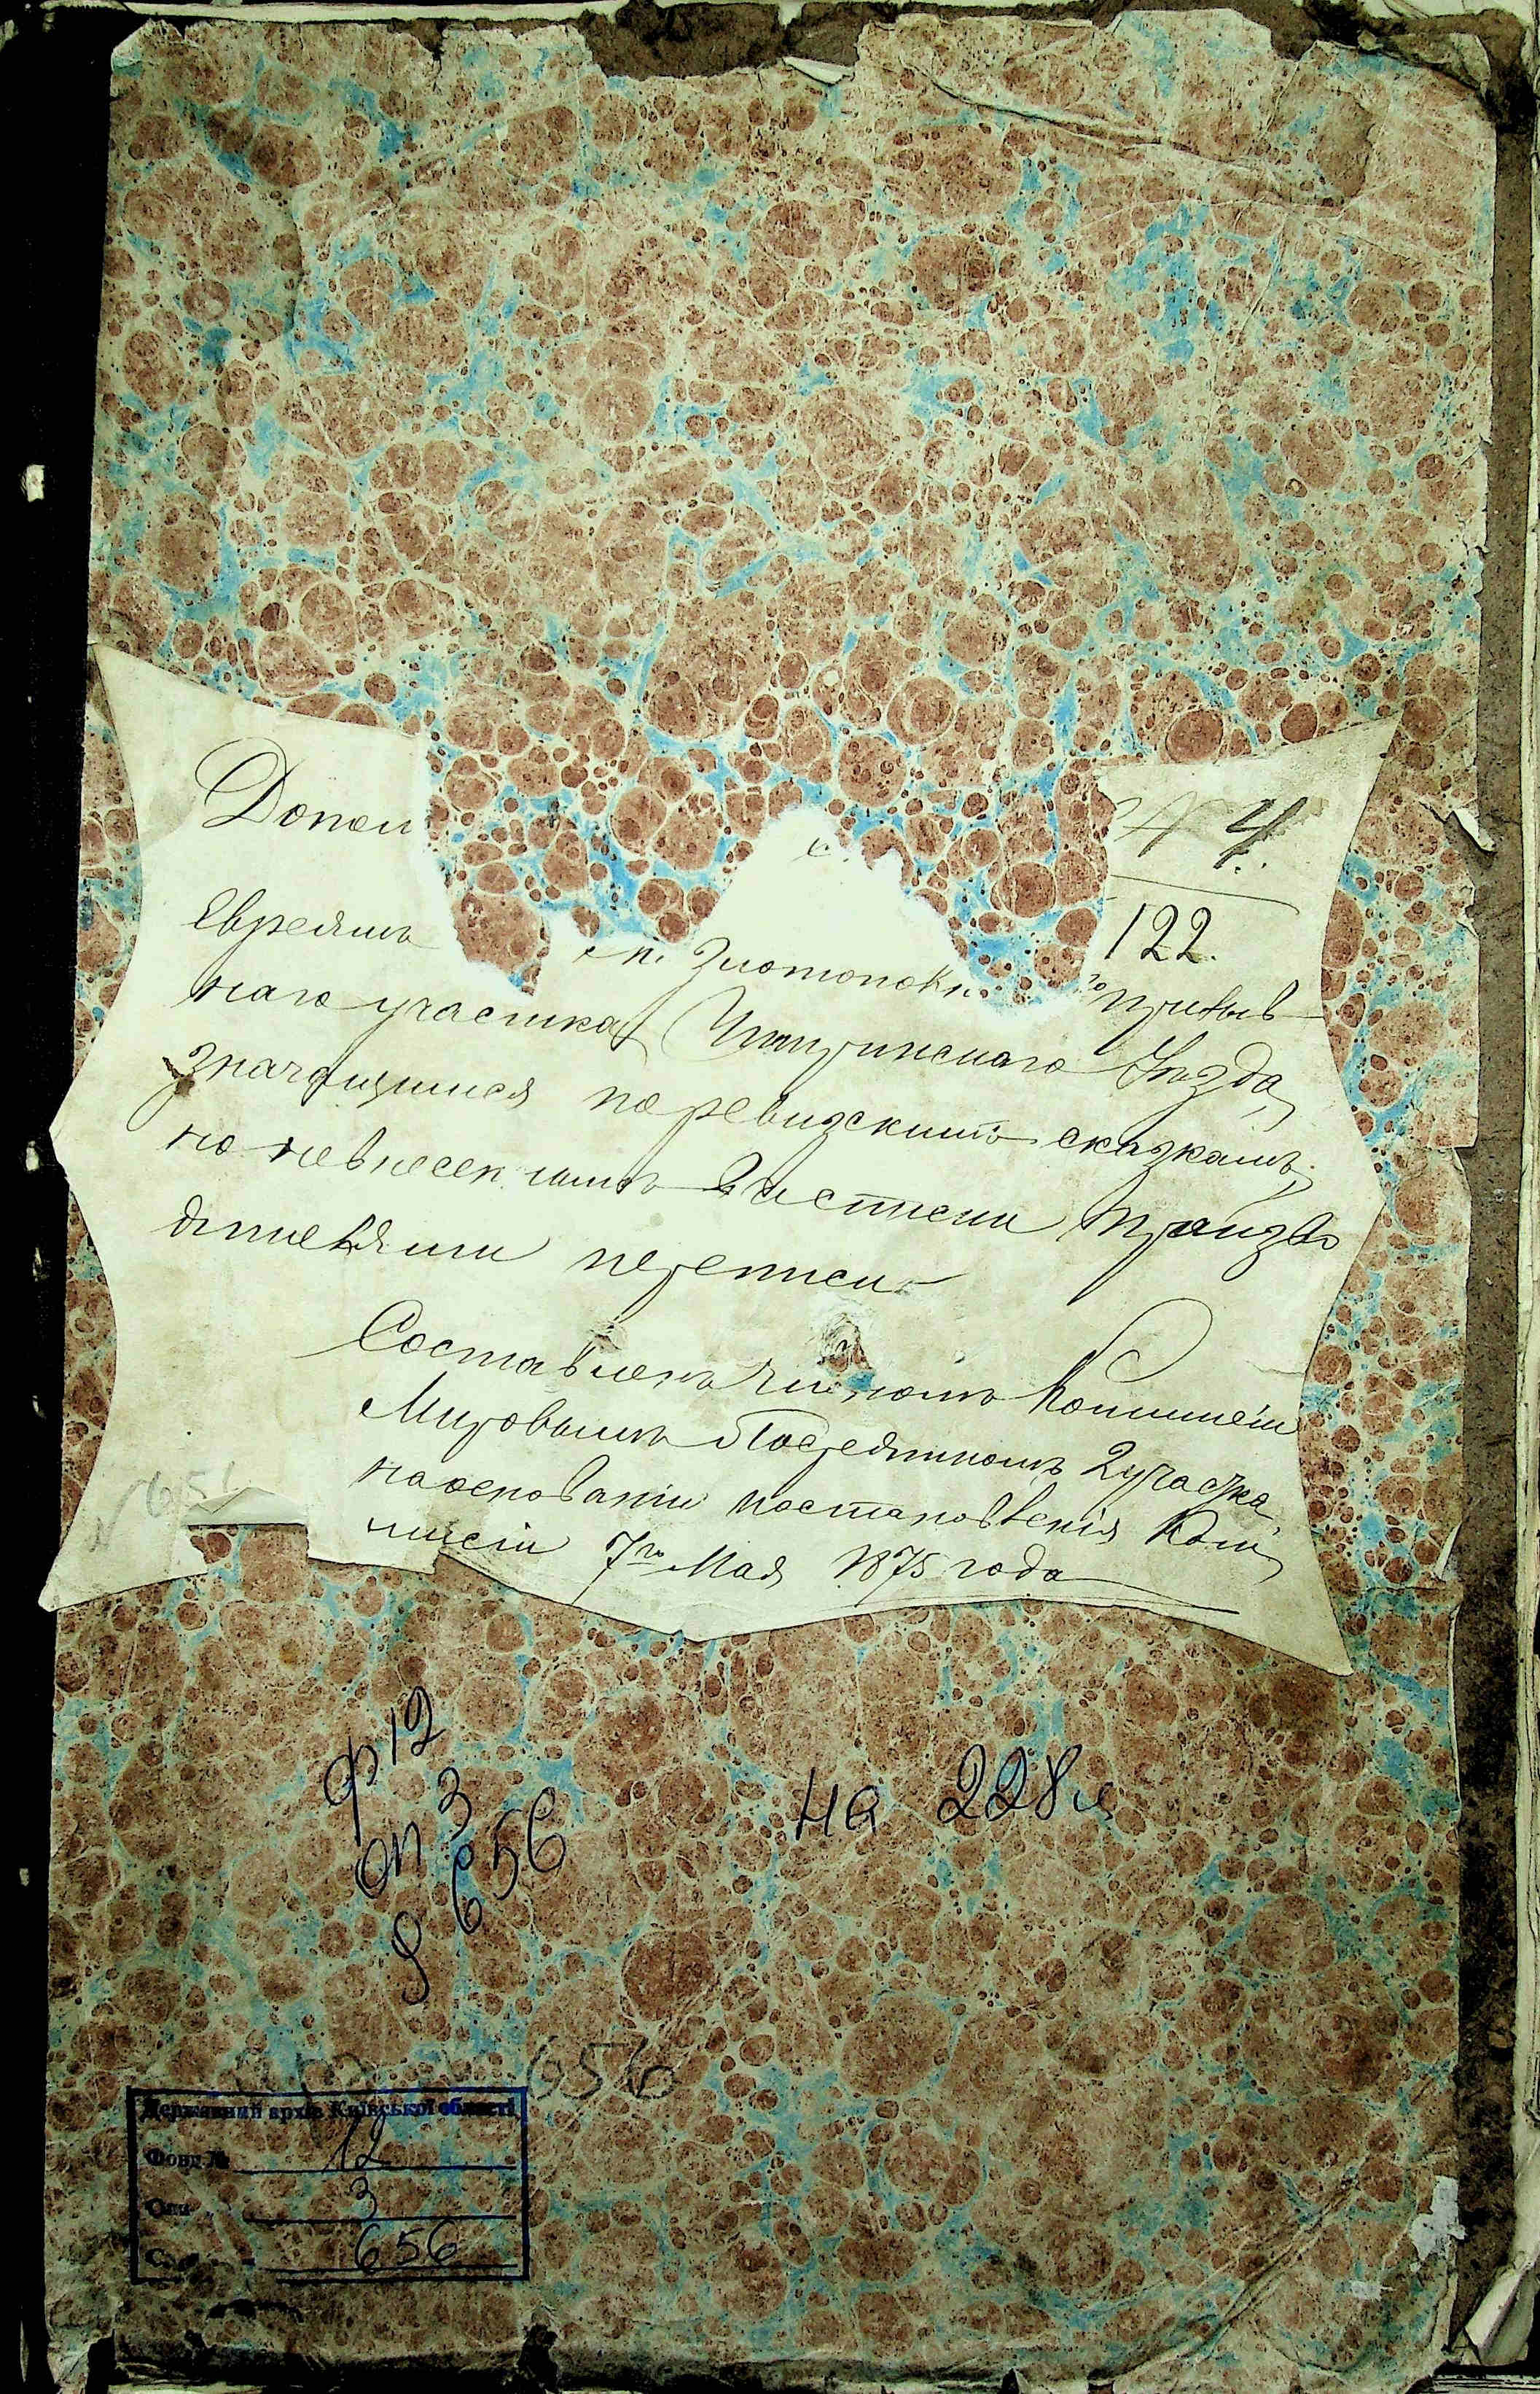 Допол
№ 4.
122.
Евреямъ м. Златополь
призыв
наго участка, Чигиринскаго Уѣзда,
значащимся по ревизскимъ сказкамъ,
но невнесеннымъ въ истекш произво
дителями переписи
Составленъ членомъ Коммисіи
Мировымъ Посредникомъ 2 участка,
на основаніи постановленія Ком
мисіи 7го Мая 1875 года
N 656
ф 12
оп 3
д 656
на 228 л
656
Державний архів Київської області
Фонд № 12
Оп. 3
656